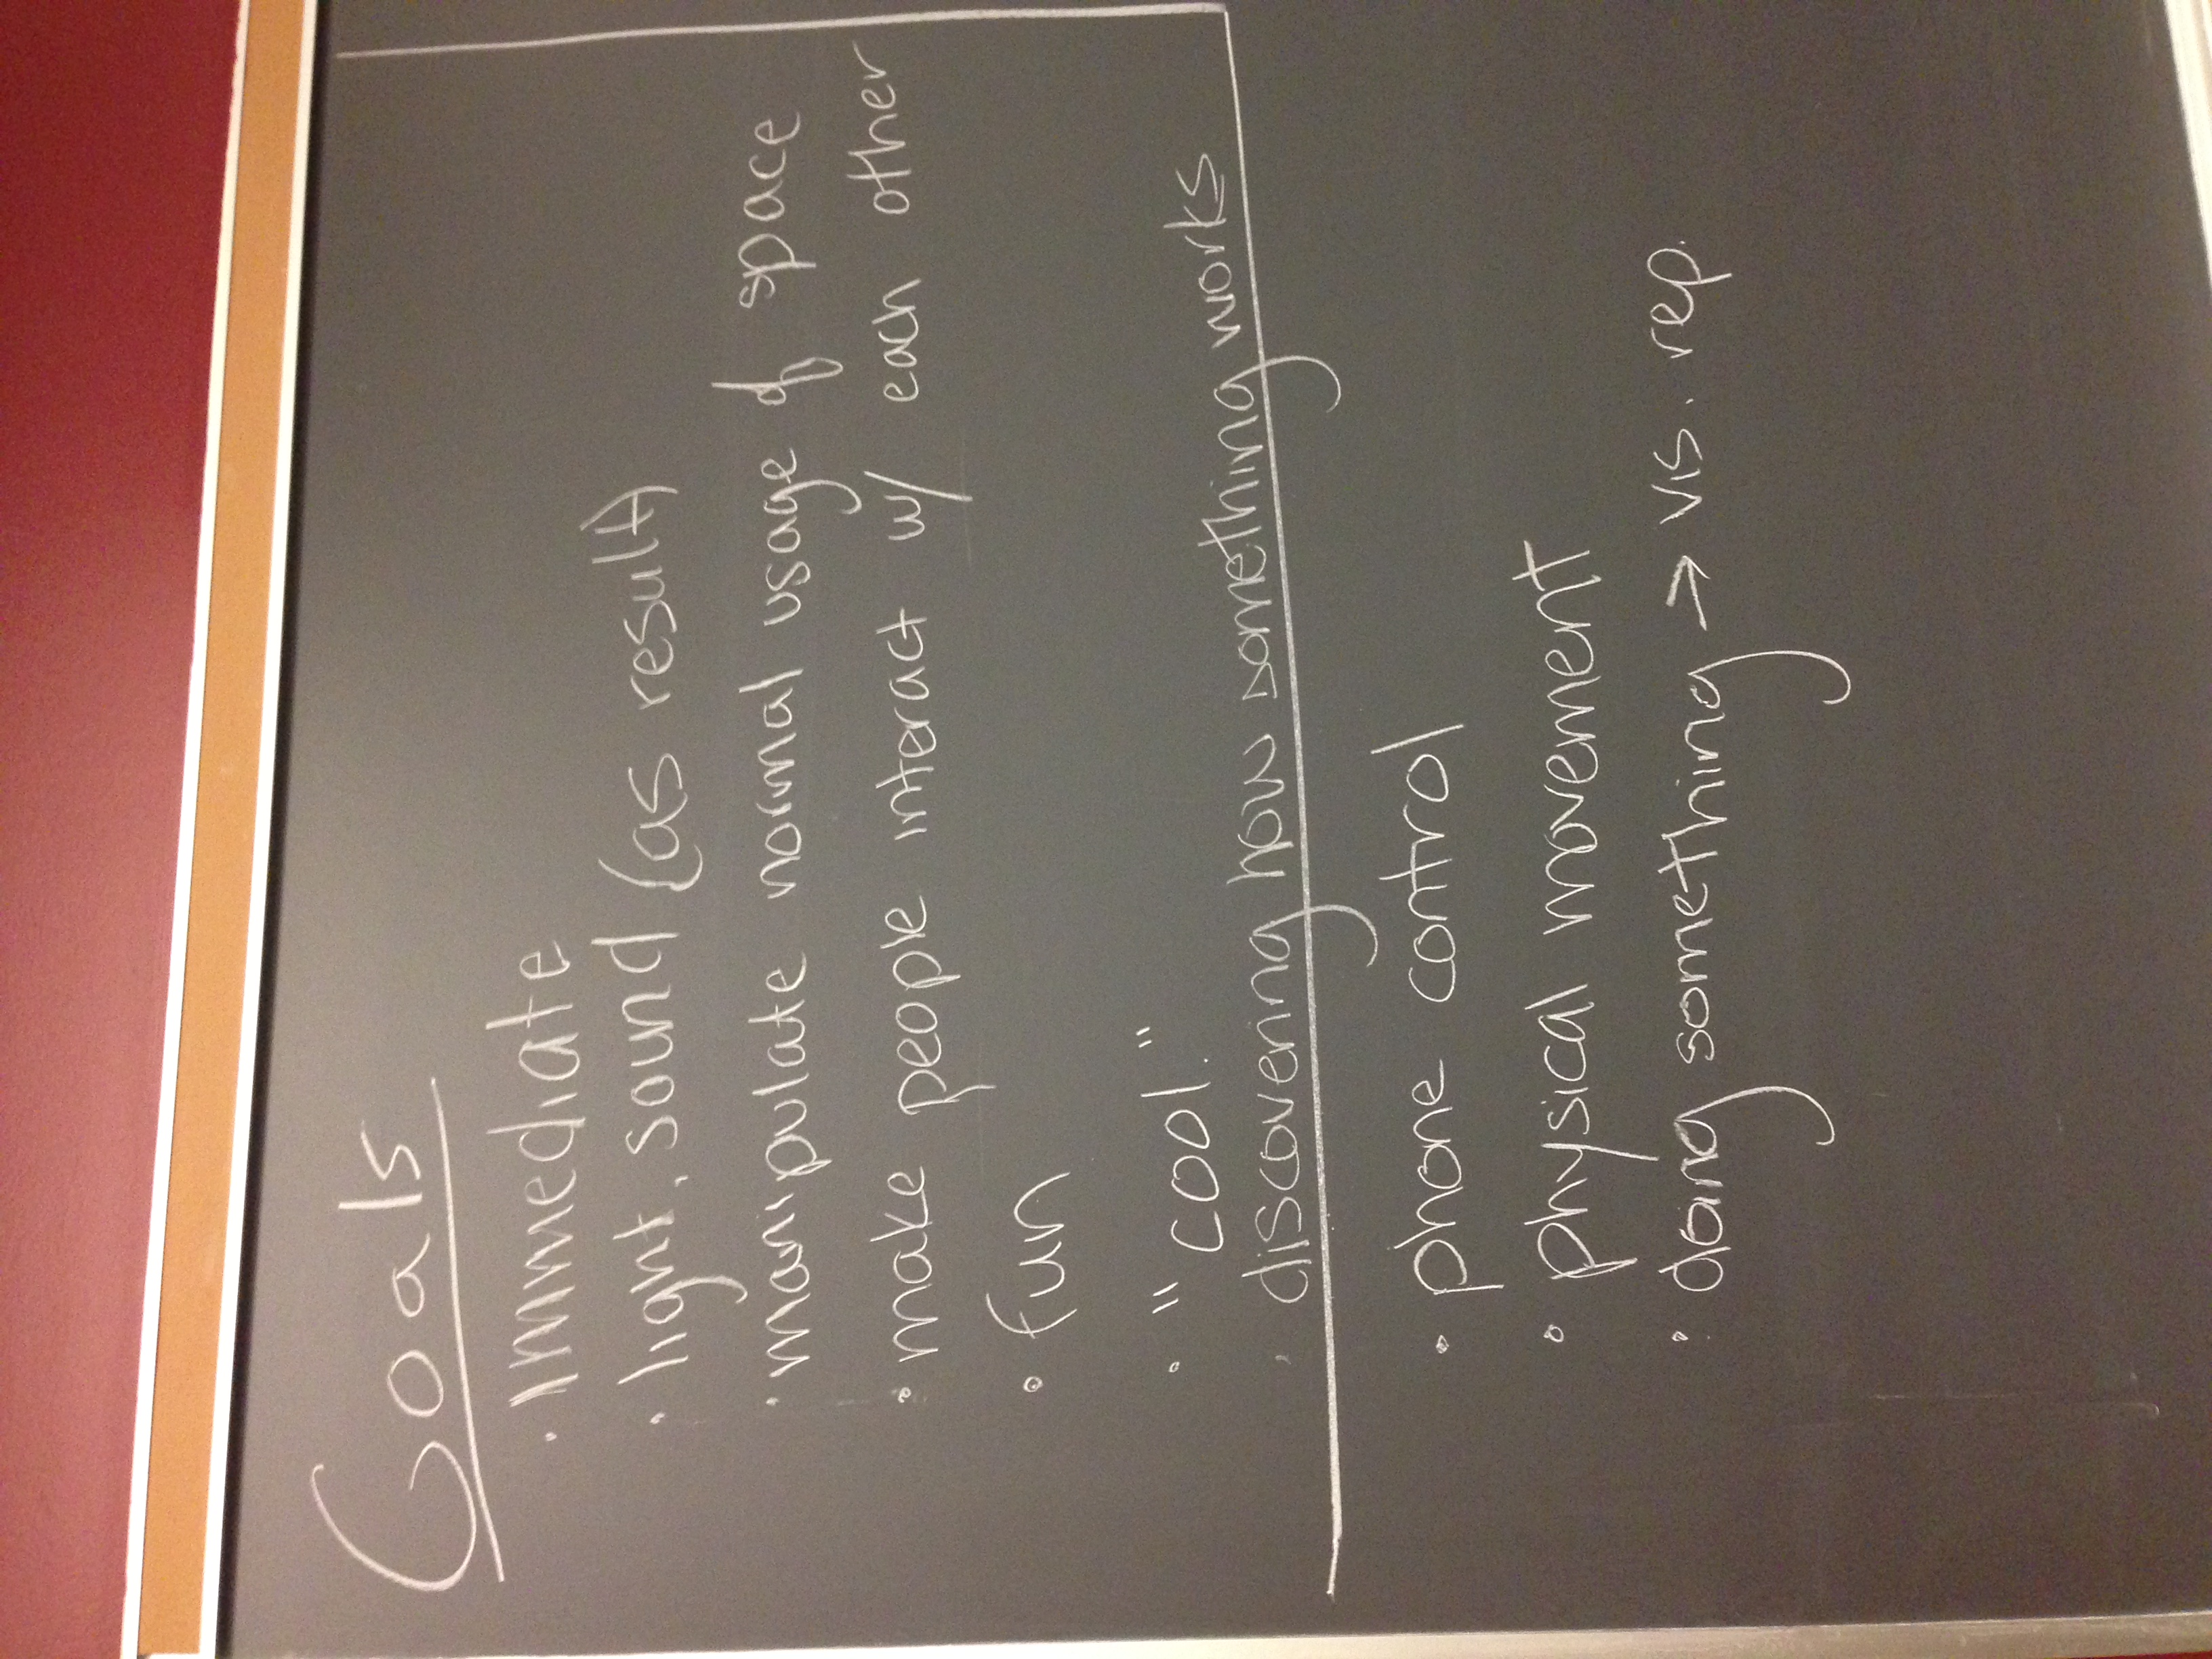 Goals
· immediate
· light, sound (as result)
· manipulate normal usage of space
· make people interact w/ each other
· fun
· "cool."
· discovering how something works
· phone control
· physical movement
· doing something → vis. rep.